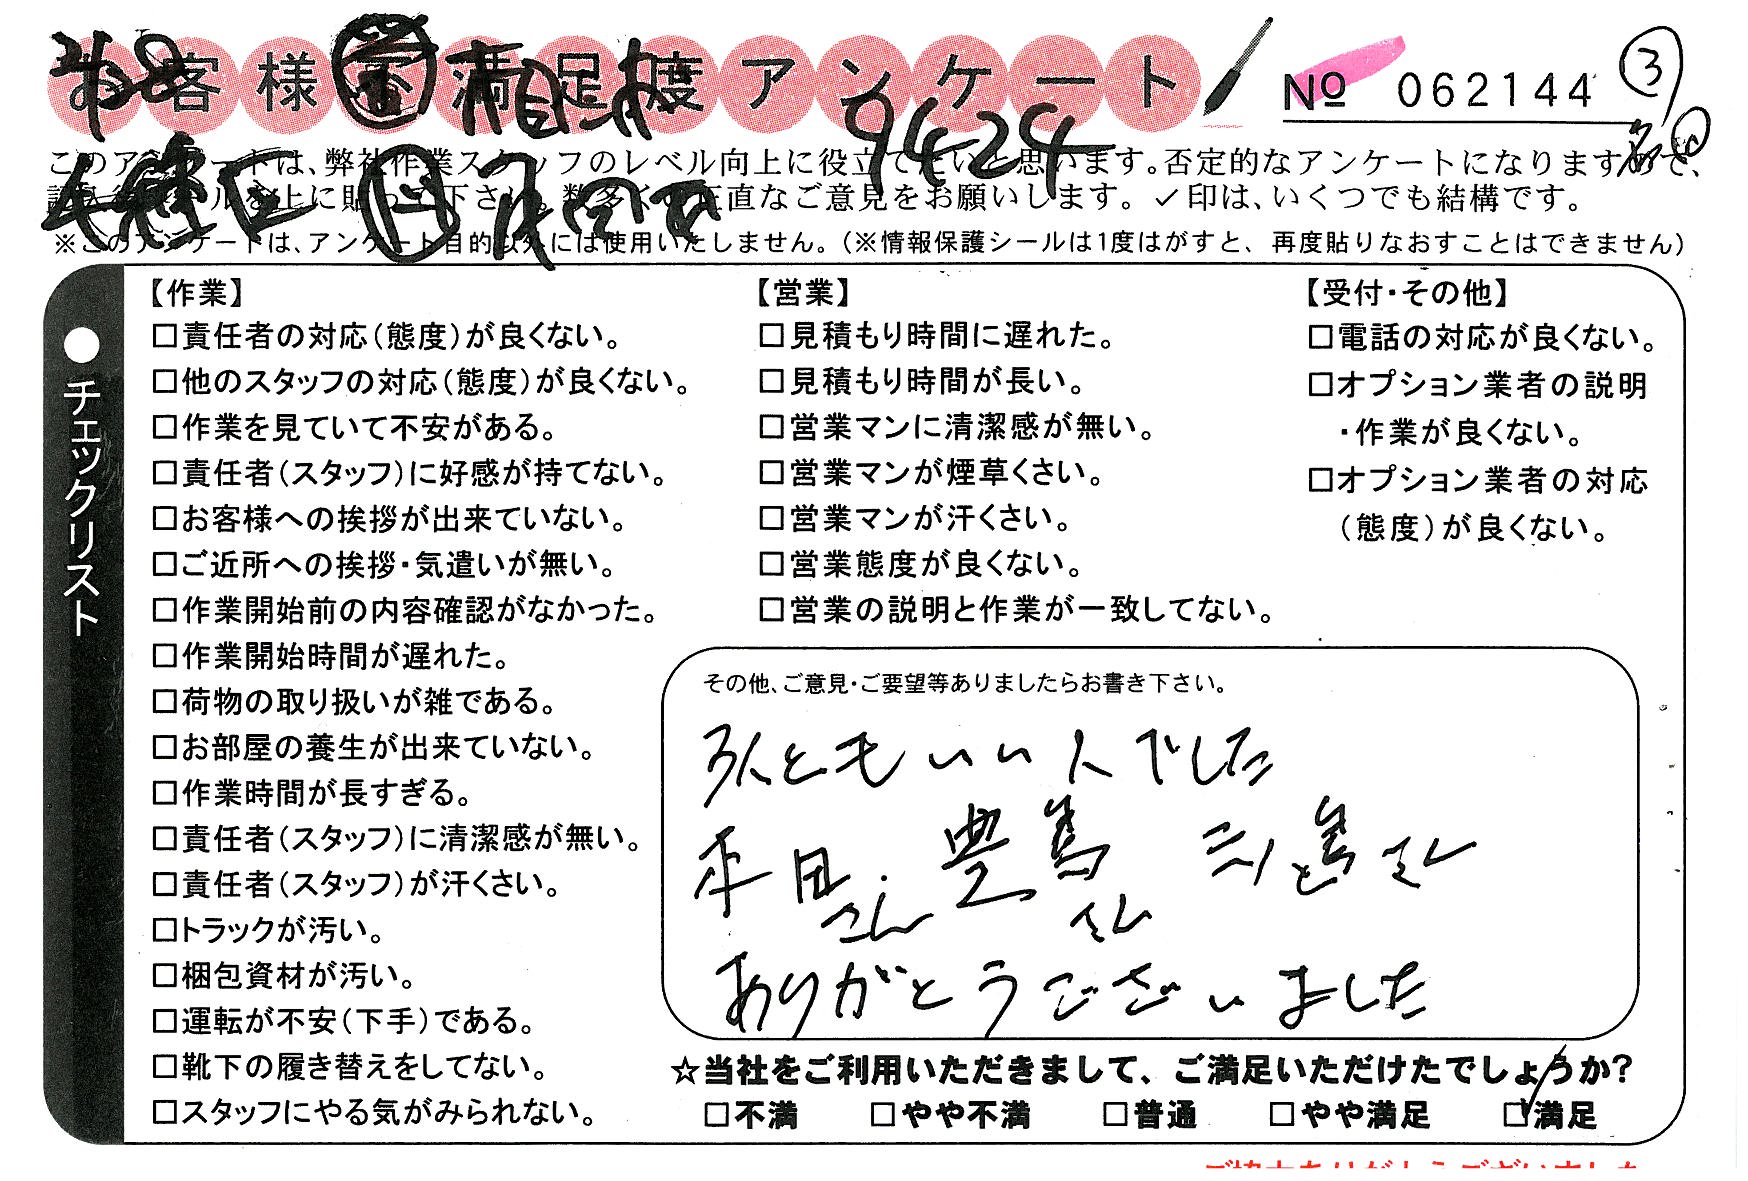 お客様不満足度アンケート
No 062144 ③
9424
このアンケートは、弊社作業スタッフのレベル向上に役立てたいと思います。否定的なアンケートになりますので、
上に貼って下さい。数多くの正直なご意見をお願いします。✓印は、いくつでも結構です。
※このアンケートは、アンケート目的以外には使用いたしません。(※情報保護シールは1度はがすと、再度貼りなおすことはできません)
●チェックリスト
【作業】
□責任者の対応(態度)が良くない。
□他のスタッフの対応(態度)が良くない。
□作業を見ていて不安がある。
□責任者(スタッフ)に好感が持てない。
□お客様への挨拶が出来ていない。
□ご近所への挨拶・気遣いが無い。
□作業開始前の内容確認がなかった。
□作業開始時間が遅れた。
□荷物の取り扱いが雑である。
□お部屋の養生が出来ていない。
□作業時間が長すぎる。
□責任者(スタッフ)に清潔感が無い。
□責任者(スタッフ)が汗くさい。
□トラックが汚い。
□梱包資材が汚い。
□運転が不安(下手)である。
□靴下の履き替えをしてない。
□スタッフにやる気がみられない。
【営業】
□見積もり時間に遅れた。
□見積もり時間が長い。
□営業マンに清潔感が無い。
□営業マンが煙草くさい。
□営業マンが汗くさい。
□営業態度が良くない。
□営業の説明と作業が一致してない。
【受付・その他】
□電話の対応が良くない。
□オプション業者の説明
・作業が良くない。
□オプション業者の対応
(態度)が良くない。
その他、ご意見・ご要望等ありましたらお書き下さい。
3人ともいい人でした
平田さん 豊嶌さん さん
ありがとうございました
☆当社をご利用いただきまして、ご満足いただけたでしょうか?
□不満 □やや不満 □普通 □やや満足 ☑満足
ご協力ありがとうございました